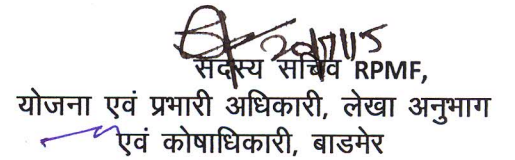 20/7/15
सदस्य सचिव RPMF,
योजना एवं प्रभारी अधिकारी, लेखा अनुभाग
एवं कोषाधिकारी, बाडमेर